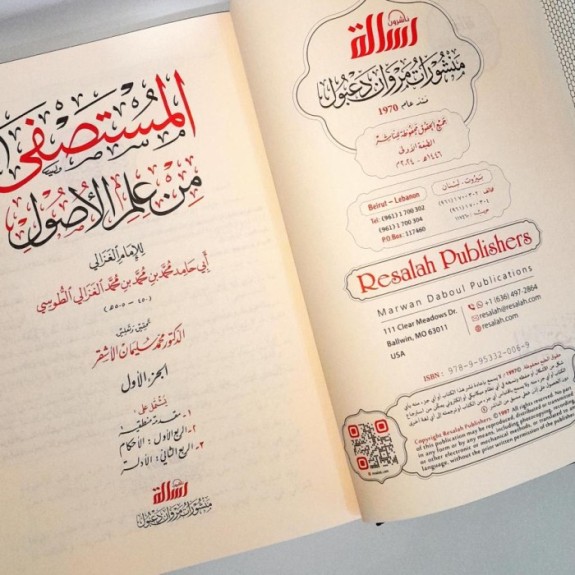 ناشرون
رسالة
منشورات مروان دعبول
منذ عام 1970
جميع الحقوق محفوظة للناشر
الطبعة الأولى
١٤٤٦هـ - ٢٠٢٤م
بيروت - لبنان
Beirut - Lebanon
Tel: (961) 1 700 302
(961) 1 700 304
P.O.Box: 117460
Resalah Publishers
Marwan Daboul Publications
111 Clear Meadows Dr.
Ballwin, MO 63011
USA
+1 (636) 497-2864
resalah@resalah.com
resalah.com
ISBN: 978-9-95332-006-9
حقوق الطبع محفوظة
Copyright Resalah Publishers. ©1997 All rights reserved. No part
of this publication may be reproduced, distributed or transmitted
in any form or by any means, including photocopying, recording,
as other electronic or mechanical methods, or translated to any
language, without the prior written permission of the publisher.
المستصفى
من علم الأصول
للإمام الغزالي
أبي حامد محمد بن محمد بن محمد الغزالي الطوسي
(٤٥٠ - ٥٠٥هـ)
تحقيق وتعليق
الدكتور محمد سليمان الأشقر
الجزء الأول
يشتمل على
١- مقدمة منطقية
٢- الربع الأول: الأحكام
٣- الربع الثاني: الأدلة
رسالة
منشورات مروان دعبول